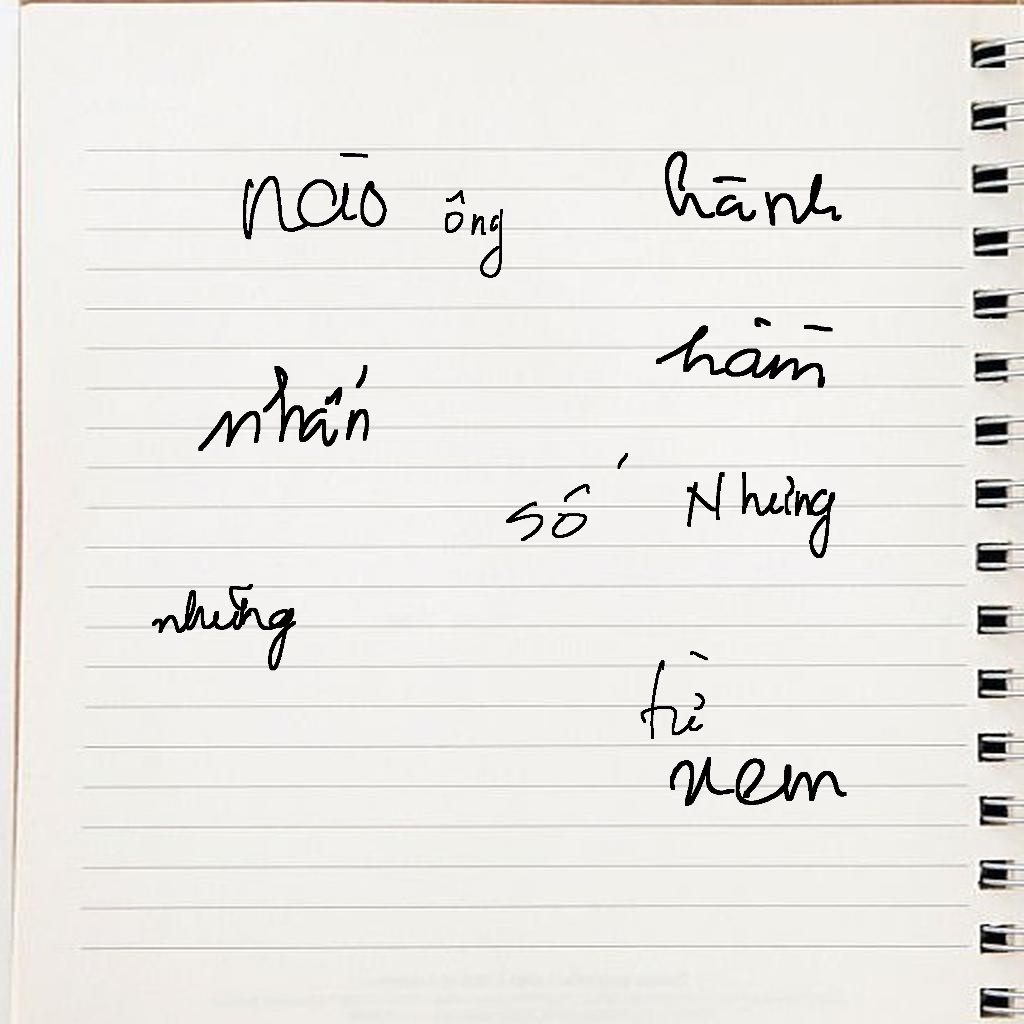 nào ông hành
hầm
nhấn
số Nhưng
những
từ
xem